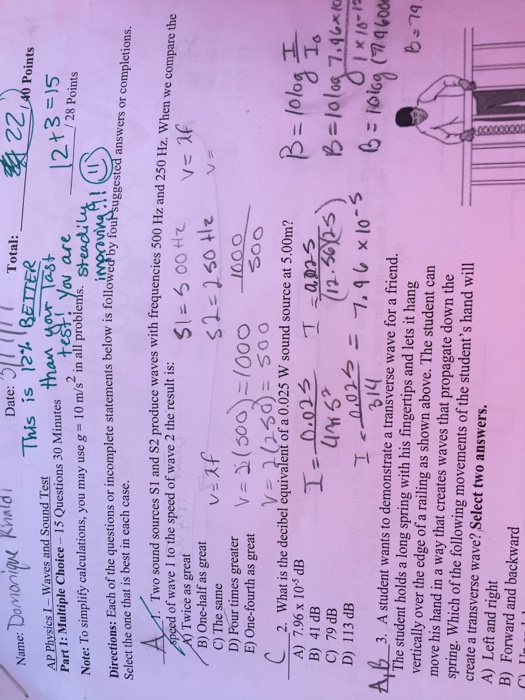 Name: Domonique Rinaldi Date: Total: 22 /40 Points
This is 12% BETTER
than your last
test! You are
steadily
improving!!
12+3=15
AP Physics 1 – Waves and Sound Test
/28 Points
Part 1: Multiple Choice – 15 Questions 30 Minutes
Note: To simplify calculations, you may use g = 10 m/s² in all problems.
Directions: Each of the questions or incomplete statements below is followed by four suggested answers or completions.
Select the one that is best in each case.
A 1. Two sound sources S1 and S2 produce waves with frequencies 500 Hz and 250 Hz. When we compare the
speed of wave 1 to the speed of wave 2 the result is:
A) Twice as great
B) One-half as great
C) The same
D) Four times greater
E) One-fourth as great
S1=500Hz v=λf
S2=250Hz v=
v=λf
v=2(500)=1000
v=2(250)=500
1000
500
C 2. What is the decibel equivalent of a 0.025 W sound source at 5.00m?
A) 7.96 x 10⁻⁵ dB
B) 41 dB
C) 79 dB
D) 113 dB
I= 0.025
4πs²
I = 0.025
(12.56)(25)
I = 0.025 = 7.96 x 10⁻⁵
314
B=10log I
I₀
B=10log 7.96x10
1x10⁻¹²
B=10log (7.9600
B=79.
A,B 3. A student wants to demonstrate a transverse wave for a friend.
The student holds a long spring with his fingertips and lets it hang
vertically over the edge of a railing as shown above. The student can
move his hand in a way that creates waves that propagate down the
spring. Which of the following movements of the student's hand will
create a transverse wave? Select two answers.
A) Left and right
B) Forward and backward